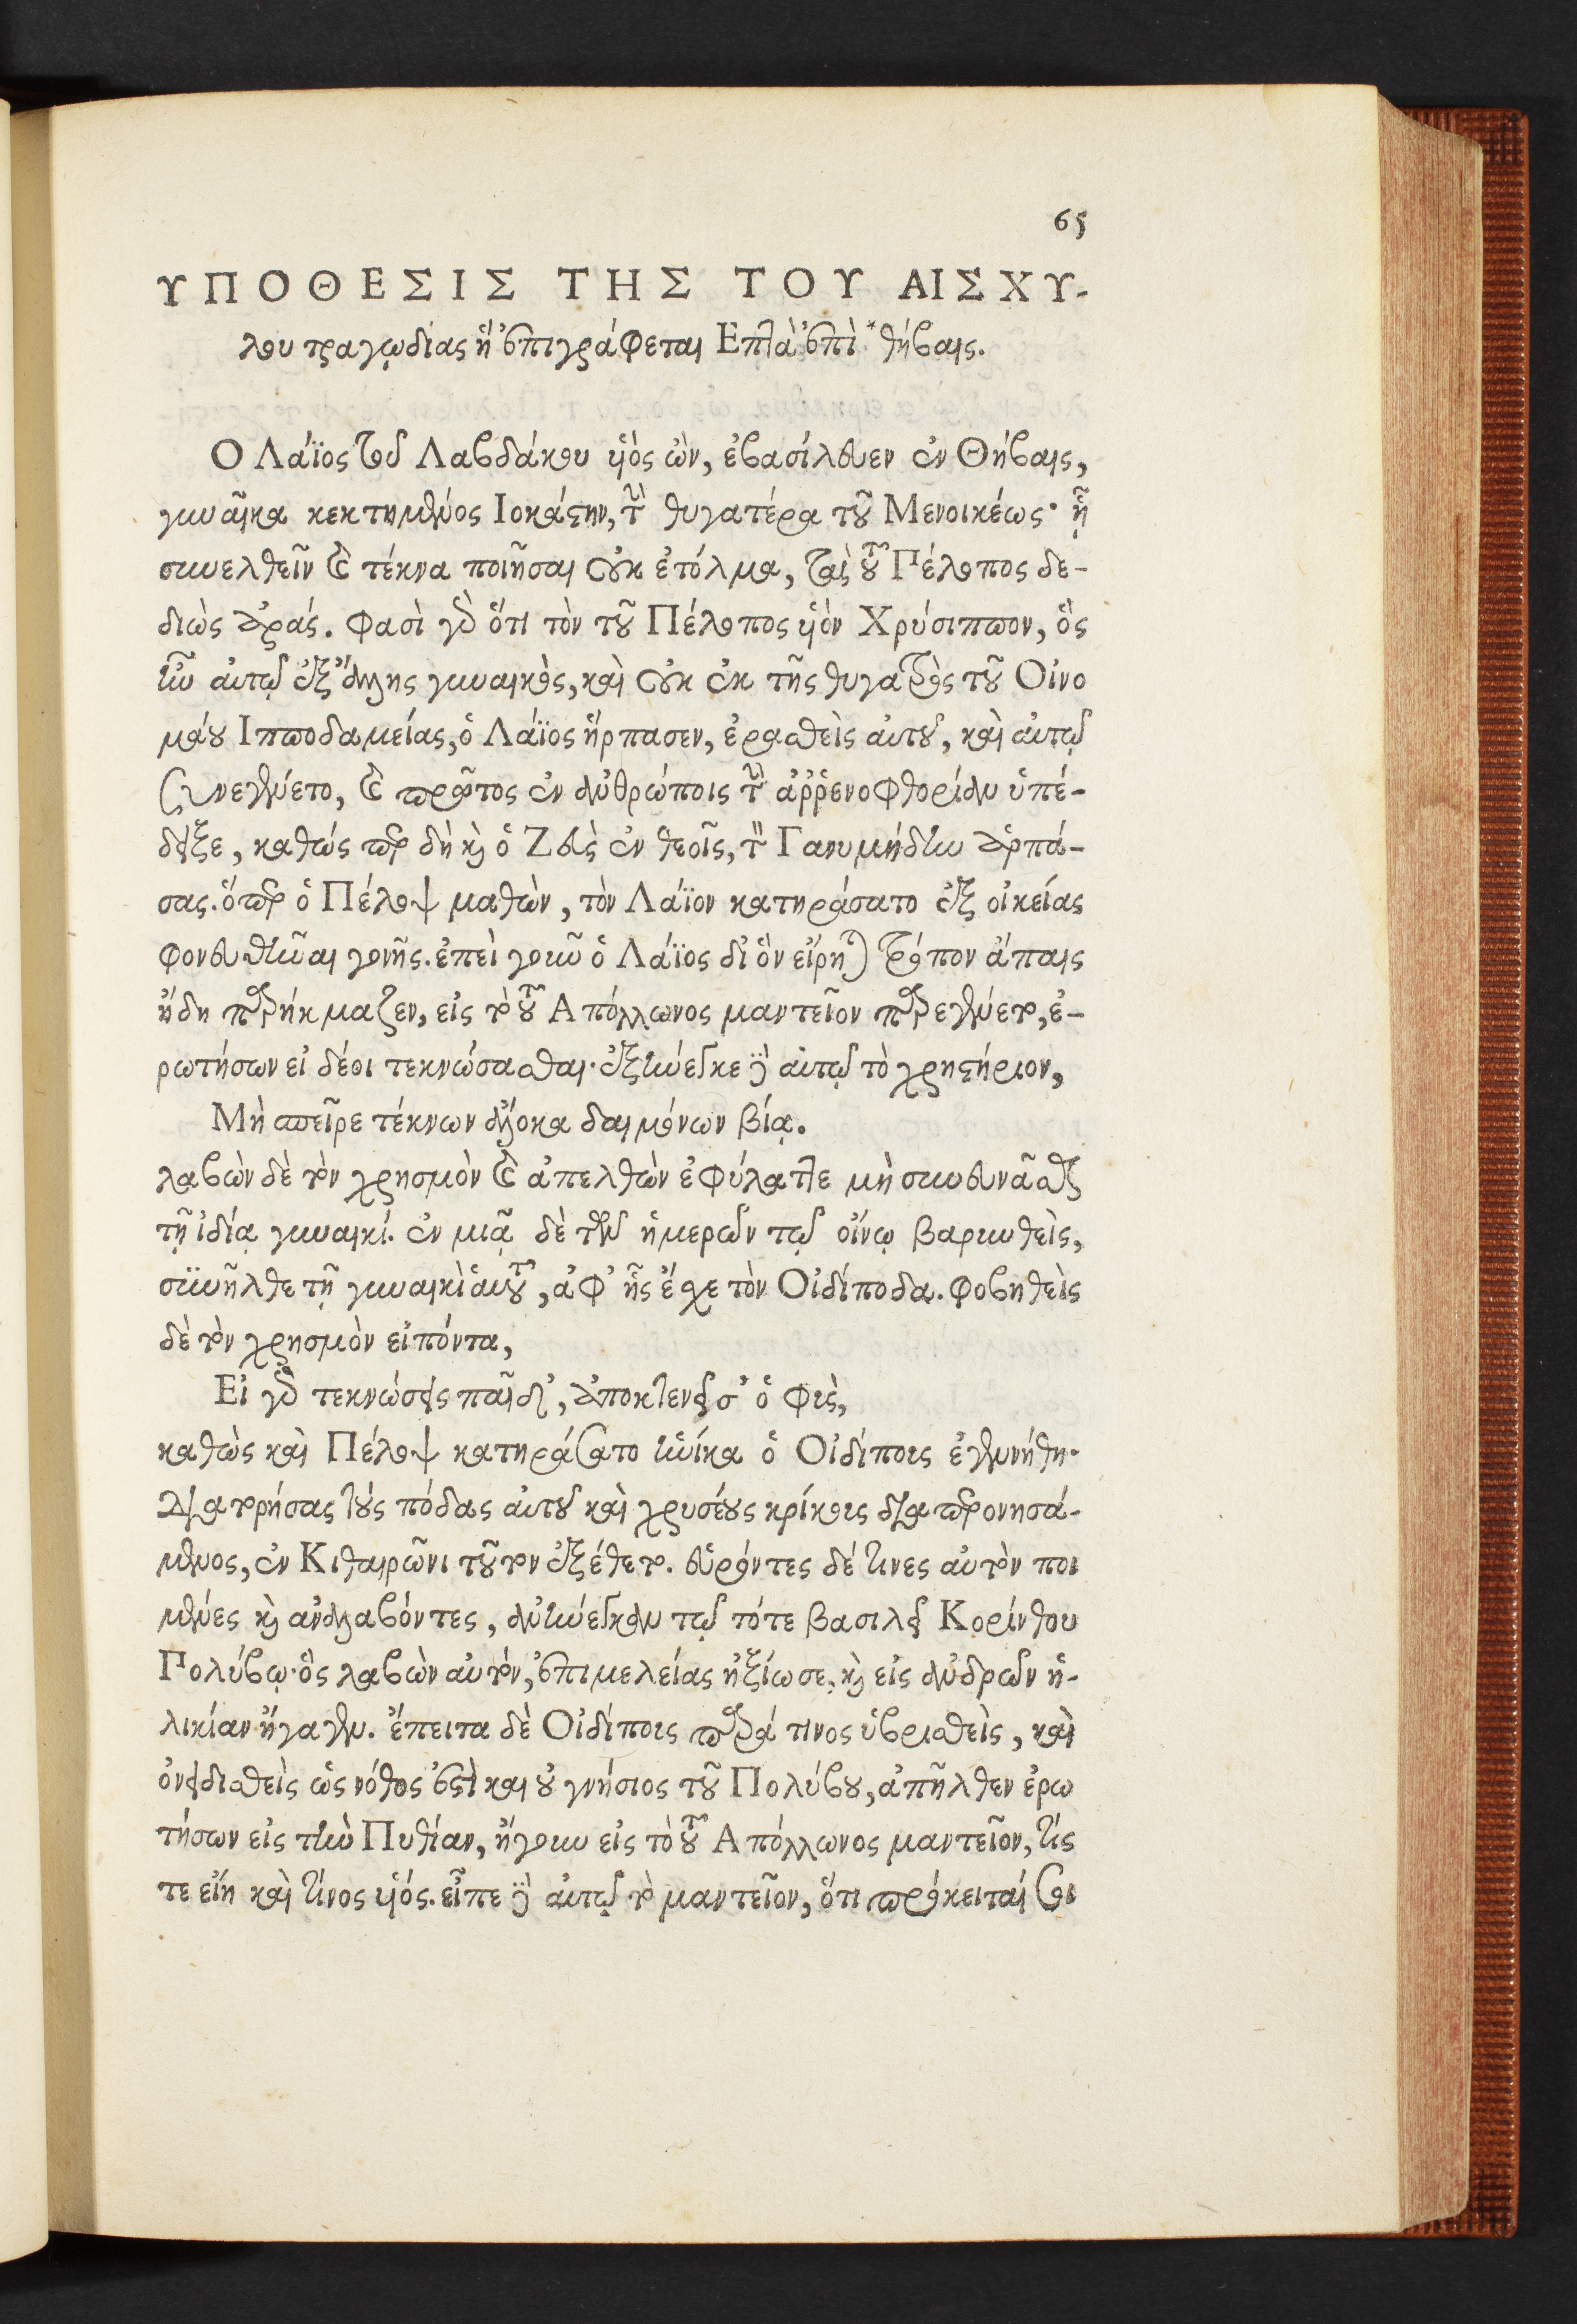 65
ΥΠΟΘΕΣΙΣ ΤΗΣ ΤΟΥ ΑΙΣΧΥ-
λου τραγῳδίας ἣ ἐπιγράφεται Επτὰ ἐπὶ *θήβαις.
Ο Λάϊος τοῦ Λαβδάκου υἱὸς ὢν, ἐβασίλευεν ἐν Θήβαις,
γυναῖκα κεκτημένος Ιοκάστην, τὴν θυγατέρα τοῦ Μενοικέως· ᾗ
συνελθεῖν καὶ τέκνα ποιῆσαι οὐκ ἐτόλμα, τὰς τοῦ Πέλοπος δε-
διὼς ἀράς. φασὶ γὰρ ὅτι τὸν τοῦ Πέλοπος υἱὸν Χρύσιππον, ὃς
ἦν αὐτῷ ἐξ ἄλλης γυναικὸς, καὶ οὐκ ἐκ τῆς θυγατρὸς τοῦ Οἰνο
μάου Ιπποδαμείας, ὁ Λάϊος ἥρπασεν, ἐρασθεὶς αὐτοῦ, καὶ αὐτῷ
συνεγένετο, καὶ πρῶτος ἐν ἀνθρώποις τὴν ἀῤῥενοφθορίαν ὑπέ-
δειξε, καθώς περ δὴ καὶ ὁ Ζεὺς ἐν θεοῖς, τὸν Γανυμήδην ἁρπά-
σας. ὅπερ ὁ Πέλοψ μαθὼν, τὸν Λάϊον κατηράσατο ἐξ οἰκείας
φονευθῆναι γονῆς. ἐπεὶ γοῦν ὁ Λάϊος δι ὃν εἴρηται τρόπον ἄπαις
ἤδη παρήκμαζεν, εἰς τὸ τοῦ Απόλλωνος μαντεῖον παρεγένετο, ἐ-
ρωτήσων εἰ δέοι τεκνώσασθαι. ἐξήνεγκε δὲ αὐτῷ τὸ χρηστήριον,
Μὴ σπεῖρε τέκνων ἄλοκα δαιμόνων βίᾳ.
λαβὼν δὲ τὸν χρησμὸν καὶ ἀπελθὼν ἐφύλαττε μὴ συνευνᾶσθαι
τῇ ἰδίᾳ γυναικί. ἐν μιᾷ δὲ τῶν ἡμερῶν τῷ οἴνῳ βαρυνθεὶς,
συνῆλθε τῇ γυναικὶ αὑτοῦ, ἀφ' ἧς ἔσχε τὸν Οἰδίποδα. φοβηθεὶς
δὲ τὸν χρησμὸν εἰπόντα,
Εἰ γὰρ τεκνώσεις παῖδ', ἀποκτενεῖ σ' ὁ φὺς,
καθὼς καὶ Πέλοψ κατηράσατο ἡνίκα ὁ Οἰδίπους ἐγεννήθη·
διατρήσας τοὺς πόδας αὐτοῦ καὶ χρυσέους κρίκους διαπερονησά-
μενος, ἐν Κιθαιρῶνι τοῦτον ἐξέθετο. εὑρόντες δέ τινες αὐτὸν ποι
μένες καὶ ἀναλαβόντες, ἀνήνεγκαν τῷ τότε βασιλεῖ Κορίνθου
Πολύβῳ· ὃς λαβὼν αὐτὸν, ἐπιμελείας ἠξίωσε, καὶ εἰς ἀνδρῶν ἡ-
λικίαν ἤγαγεν. ἔπειτα δὲ Οἰδίπους παρά τινος ὑβρισθεὶς, καὶ
ὀνειδισθεὶς ὡς νόθος ἐστὶ και οὐ γνήσιος τοῦ Πολύβου, ἀπῆλθεν ἐρω
τήσων εἰς τὴν Πυθίαν, ἤγουν εἰς τὸ τοῦ Απόλλωνος μαντεῖον, τίς
τε εἴη καὶ τίνος υἱός. εἶπε δὲ αὐτῷ τὸ μαντεῖον, ὅτι πρόκειταί σοι